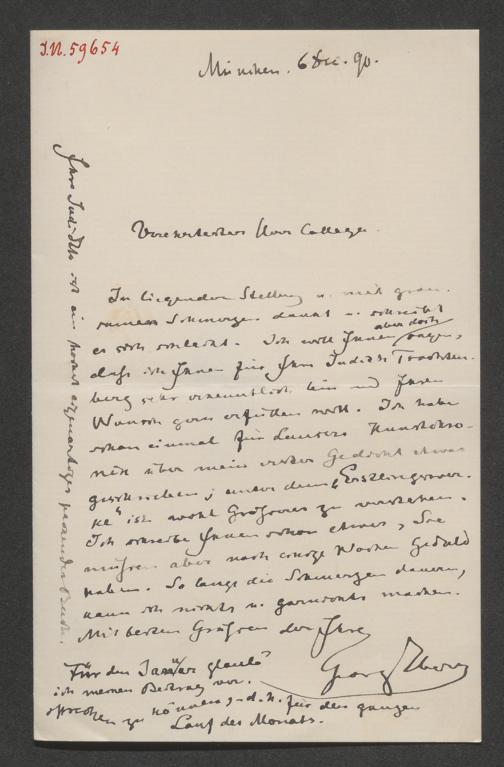 I.N. 59654
München. 6 Dec. 90.
Verehrtester Herr College.
In liegender Stellung u. mit grau-
samen Schmerzen denkt u. schreibt
es sich schlecht. Ich will Ihnen aber doch sagen,
daß ich Ihnen für Ihre Judith Trachten-
berg sehr erkenntlich bin und Ihren
Wunsch gern erfüllen will. Ich habe
schon einmal für
nik über mein erstes Gedicht etwas
geschrieben; unter dem „Erstlingswer-
ke" ist wohl Größeres zu verstehen.
Ich schreibe Ihnen schon etwas, Sie
müssen aber noch einige Wochen Geduld
haben. So lange die Schmerzen dauern,
kann ich nichts u. garnichts machen.
Mit besten Grüßen der Ihre
Georg Ebers
Für den Januar glaube
ich meinen Beitrag ver-
sprechen zu können, d. h. für den ganzen
Lauf des Monats.
Ihre Judith ist ein höchst eigenartiges Buch.